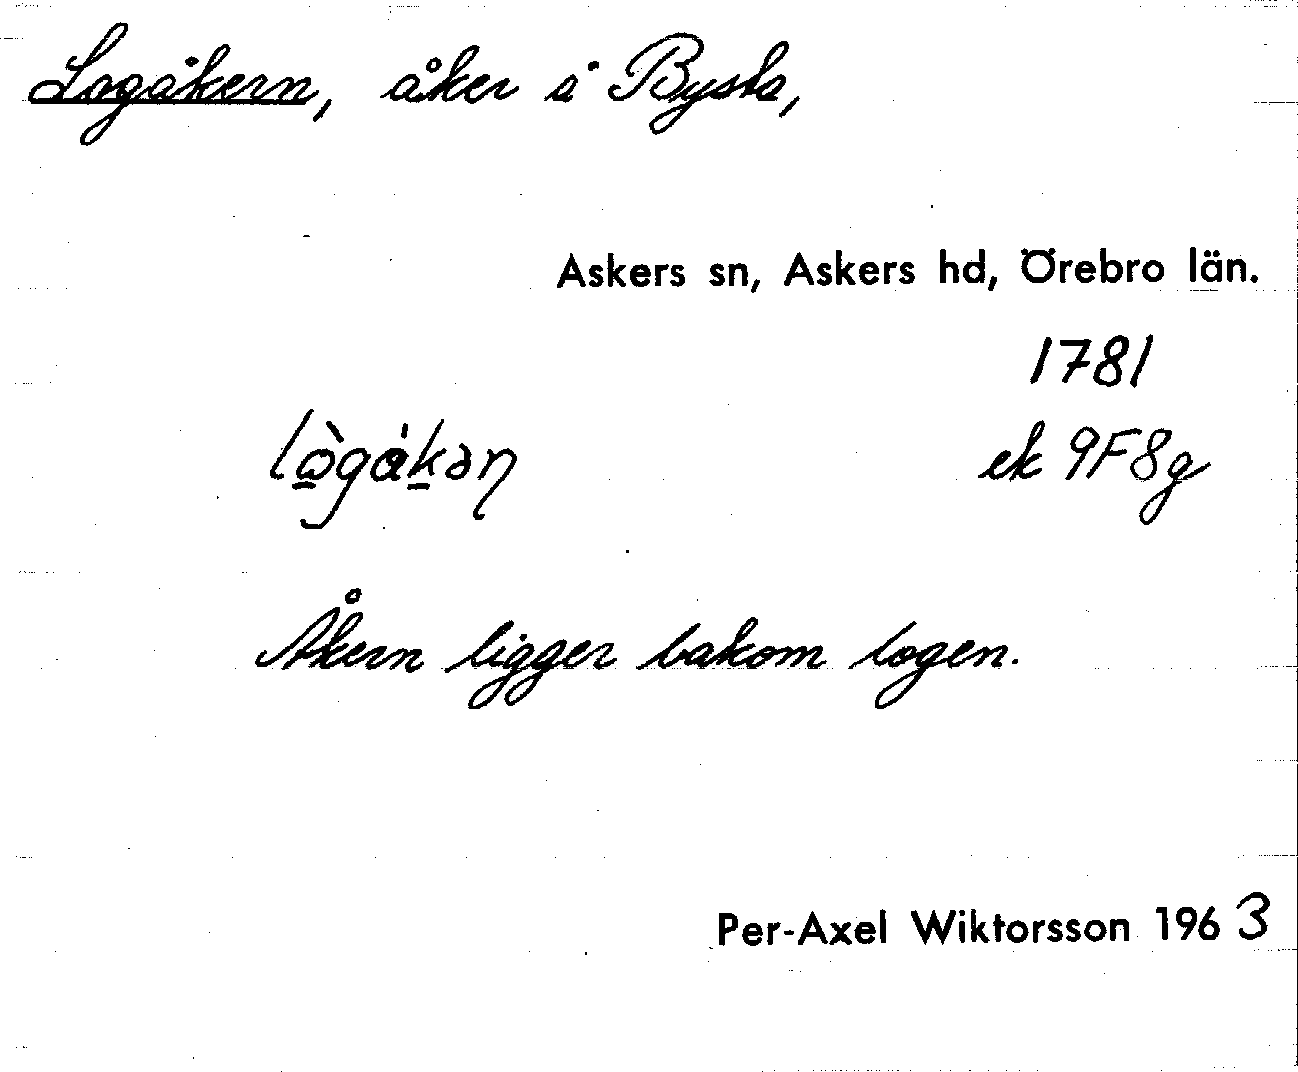 Logåkern, åker i Bysta,
Askers sn, Askers hd, Örebro län.
1781
lò̱gáḵəɳ ek 9F8g
Åkern ligger bakom logen.
Per-Axel Wiktorsson 1963